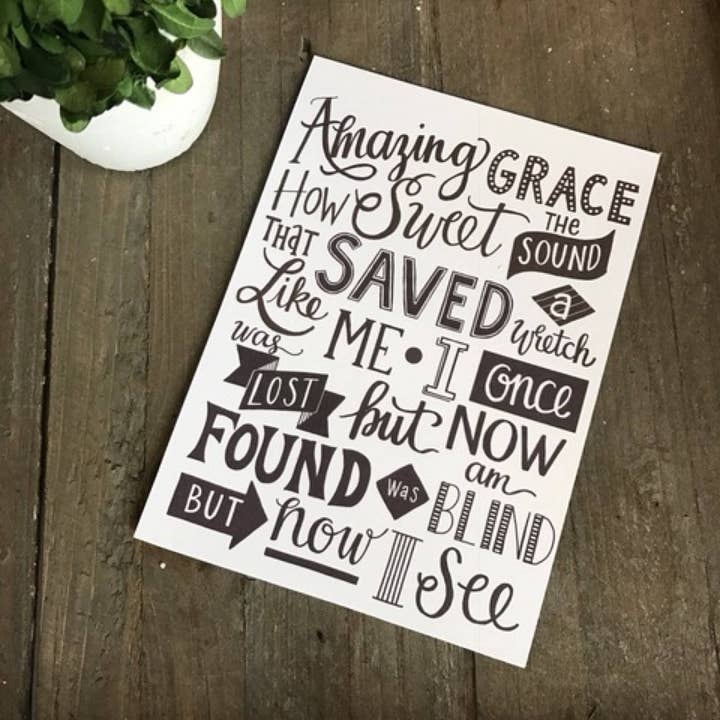 Amazing GRACE
How Sweet THE SOUND
THAT SAVED a wretch
Like ME • I once
was LOST but NOW am
FOUND was BLIND
BUT now I See